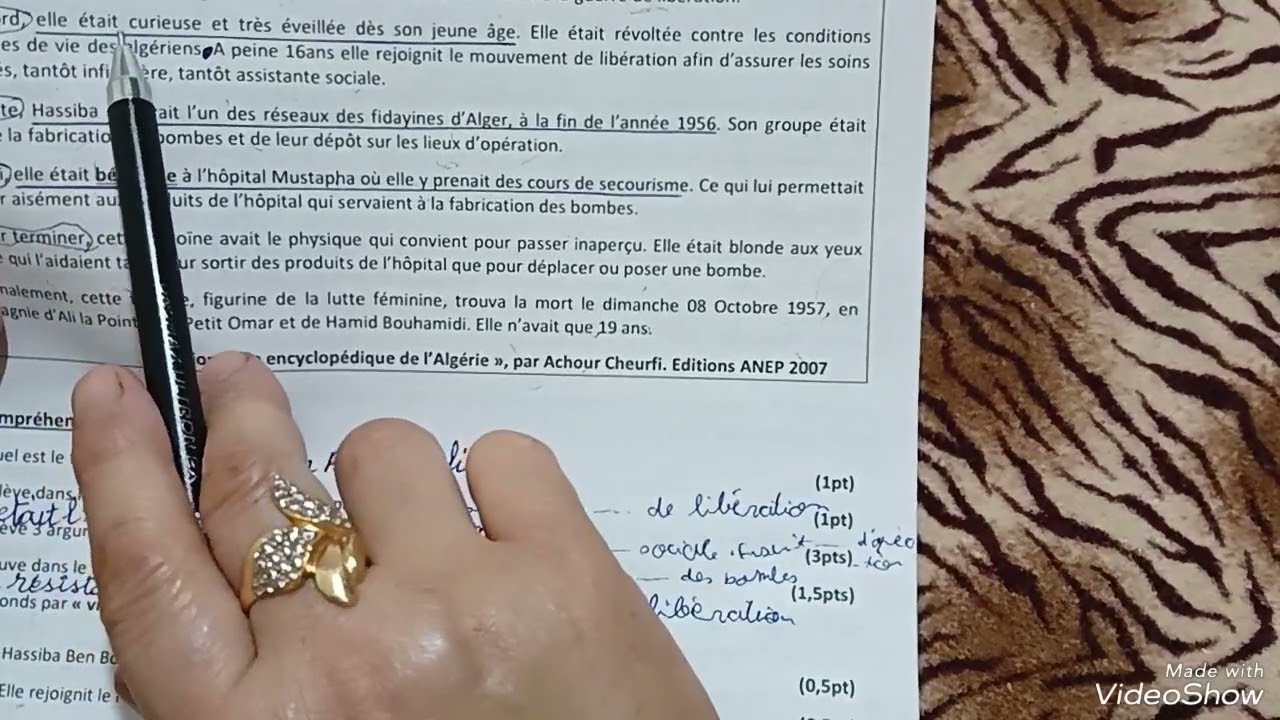 elle était curieuse et très éveillée dès son jeune âge. Elle était révoltée contre les conditions
es de vie des algériens. A peine 16ans elle rejoignit le mouvement de libération afin d'assurer les soins
és, tantôt infi ère, tantôt assistante sociale.
te, Hassiba ait l'un des réseaux des fidayines d'Alger, à la fin de l'année 1956. Son groupe était
la fabricatio bombes et de leur dépôt sur les lieux d'opération.
elle était bé e à l'hôpital Mustapha où elle y prenait des cours de secourisme. Ce qui lui permettait
r aisément au uits de l'hôpital qui servaient à la fabrication des bombes.
r terminer, cet oïne avait le physique qui convient pour passer inaperçu. Elle était blonde aux yeux
qui l'aidaient ta ur sortir des produits de l'hôpital que pour déplacer ou poser une bombe.
nalement, cette e, figurine de la lutte féminine, trouva la mort le dimanche 08 Octobre 1957, en
agnie d'Ali la Point Petit Omar et de Hamid Bouhamidi. Elle n'avait que 19 ans.
encyclopédique de l'Algérie », par Achour Cheurfi. Editions ANEP 2007
mpréhen
uel est le
(1pt)
lève dans
de libération
(1pt)
ève 3 argu
sociale
(3pts)
uve dans le
des bombes
résist
(1,5pts)
onds par « v
libération
Hassiba Ben Bo
(0,5pt)
Elle rejoignit le
Made with
VideoShow